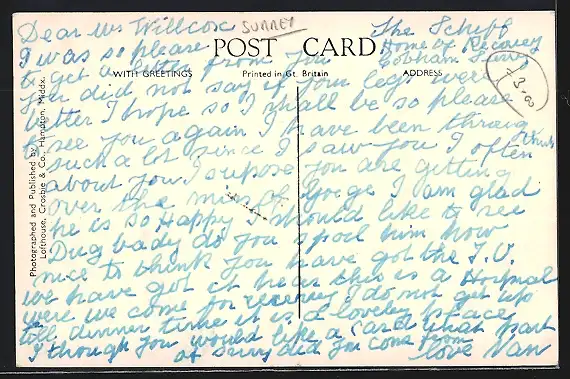 SURREY
Dear Mrs Willcox
The Schiff
Home of Recovery
Cobham Surrey
POST CARD
WITH GREETINGS
Printed in Gt. Britain
ADDRESS
3.00
Photographed and Published by
Lofthouse, Crosbie & Co., Hampton, Middx.
I was so please
to get a letter from you
you did not say if your legs were
better I hope so I shall be so please
to see you again I have been through
such a lot since I saw you I often think
about you I supose you are getting
over the miss of Goege I am glad
he is so Happy I should like to see
Dug bady do you spoil him how
nice to think you have got the T.V.
we have got it hear this is a Hospital
were we come for recovery I do not get up
till dinner time it is a loveley place
I though you would like a Card what part
of Surry did you come from
love Nan